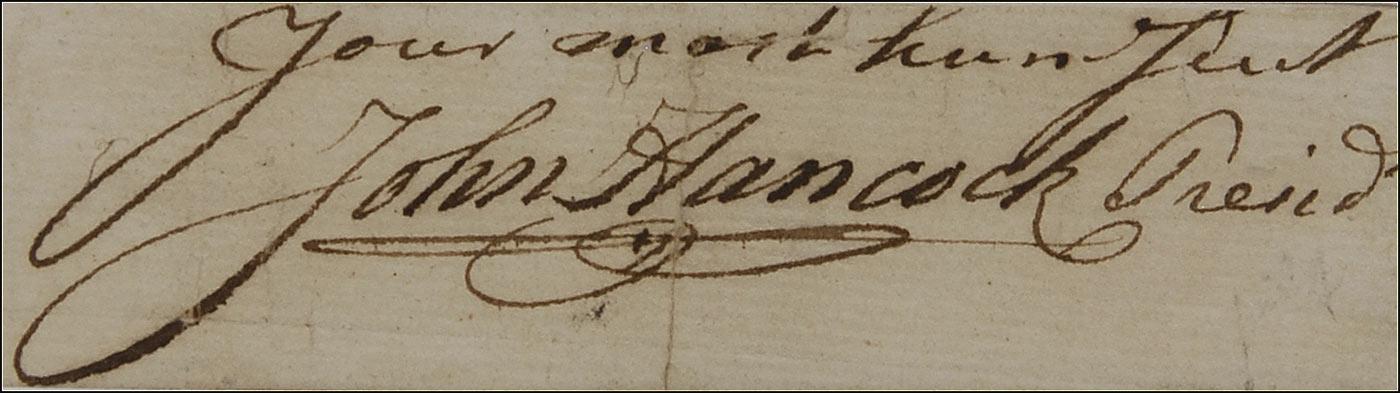 Your most hum Servt
John Hancock Presid